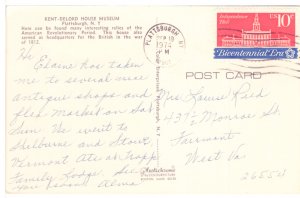 KENT-DELORD HOUSE MUSEUM
Plattsburgh, N.Y.
Here can be found many interesting relics of the
American Revolutionary Period. This house also
served as headquarters for the British in the war
of 1812.
PLATTSBURGH NY
PM
Independence Hall
US 10c
Bicentennial Era
Hi Elaine has taken
me to several nice
antique shops and
flea Market on Sat
Sun. We went to
Shelburne and Stowe,
Vermont Ate at Trapp
Family Lodge.
Alma
POST CARD
Mrs. Louise Reed
437 Monroe St.
Fairmont
West Va.
26554